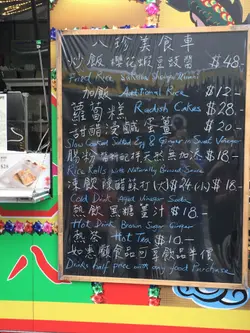 八珍美食車
炒飯 櫻花蝦豆豉醬 $48.-
Fried Rice Sakura Shrimp
加飯 Additional Rice $12.-
蘿蔔糕 Radish Cakes $28.-
甜醋浸鹹蛋薑 $20.-
Slow Cooked Salted Egg & Ginger in Sweet Vinegar
腸粉 天然無添加 $18.-
Rice Rolls with Naturally Brewed Sauce
凍飲 辣醋蘇打 (大)$24 (小)$18.-
Cold Drink Aged Vinegar Soda
熱飲 黑糖薑汁 $18.-
Hot Drink Brown Sugar Ginger
熱茶 Hot Tea $10.-
如惠顧食品可享飲品半價
Drinks half price with any food Purchase
八